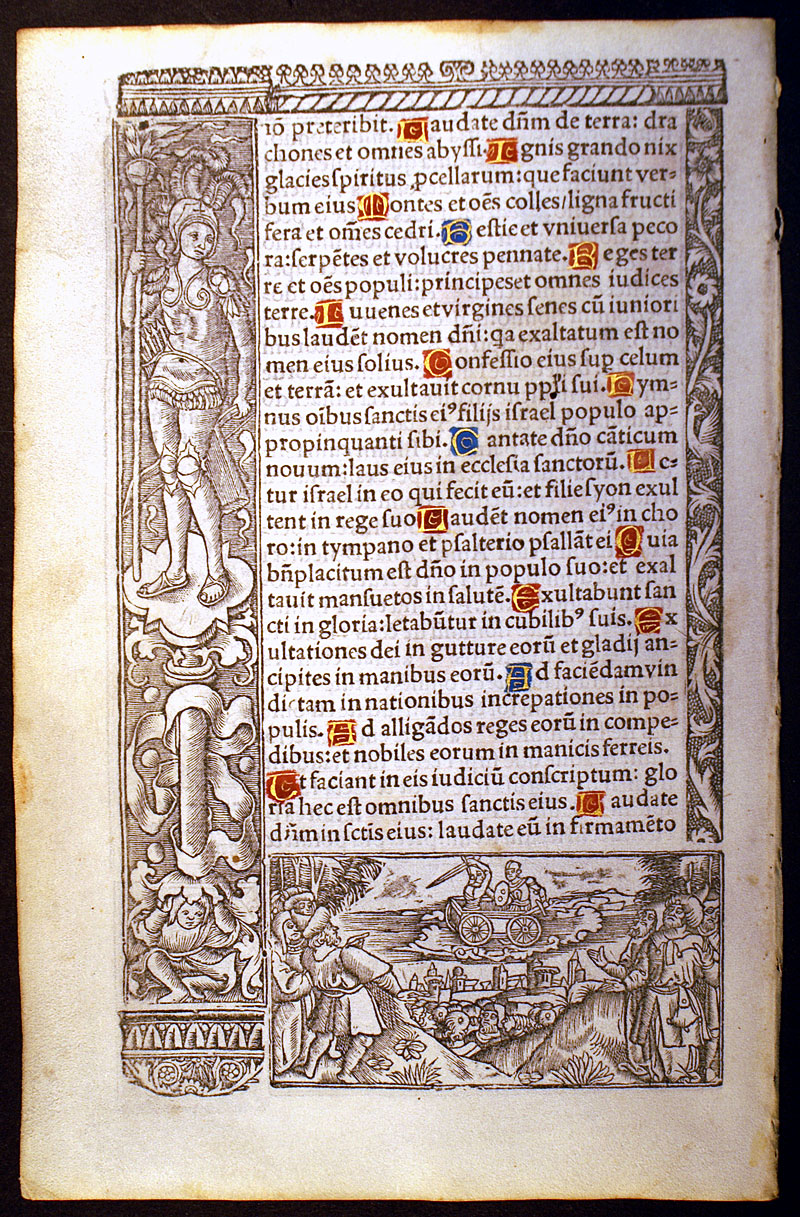 iō preteribit. Laudate dn̄m de terra: dra
chones et omnes abyssi. Ignis grando nix
glacies spiritus ꝓcellarum: que faciunt ver=
bum eius Montes et oēs colles/ligna fructi
fera et om̄es cedri. Bestie et vniuersa peco
ra: serpētes et volucres pennate. Reges ter
re et oēs populi: principes et omnes iudices
terre. Iuuenes et virgines senes cū iuniori
bus laudēt nomen dn̄i: qa exaltatum est no
men eius solius. Confessio eius suꝑ celum
et terrā: et exultauit cornu ppłi sui. Hym=
nus oībus sanctis eiꝰ filijs israel populo ap=
propinquanti sibi. Cantate dn̄o cāticum
nouum: laus eius in ecclesia sanctorū. Le=
tur israel in eo qui fecit eū: et filie syon exul
tent in rege suo Laudēt nomen eiꝰ in cho
ro: in tympano et psalterio psallāt ei Quia
bn̄placitum est dn̄o in populo suo: et exal
tauit mansuetos in salutē. Exultabunt san
cti in gloria: letabūtur in cubilibꝰ suis. Ex
ultationes dei in gutture eorū et gladij an=
cipites in manibus eorū. Ad faciēdam vin
dictam in nationibus increpationes in po=
pulis. Ad alligādos reges eorū in compe=
dibus: et nobiles eorum in manicis ferreis.
Et faciant in eis iudiciū conscriptum: glo
ria hec est omnibus sanctis eius. Laudate
dn̄m in sctīs eius: laudate eū in firmamēto